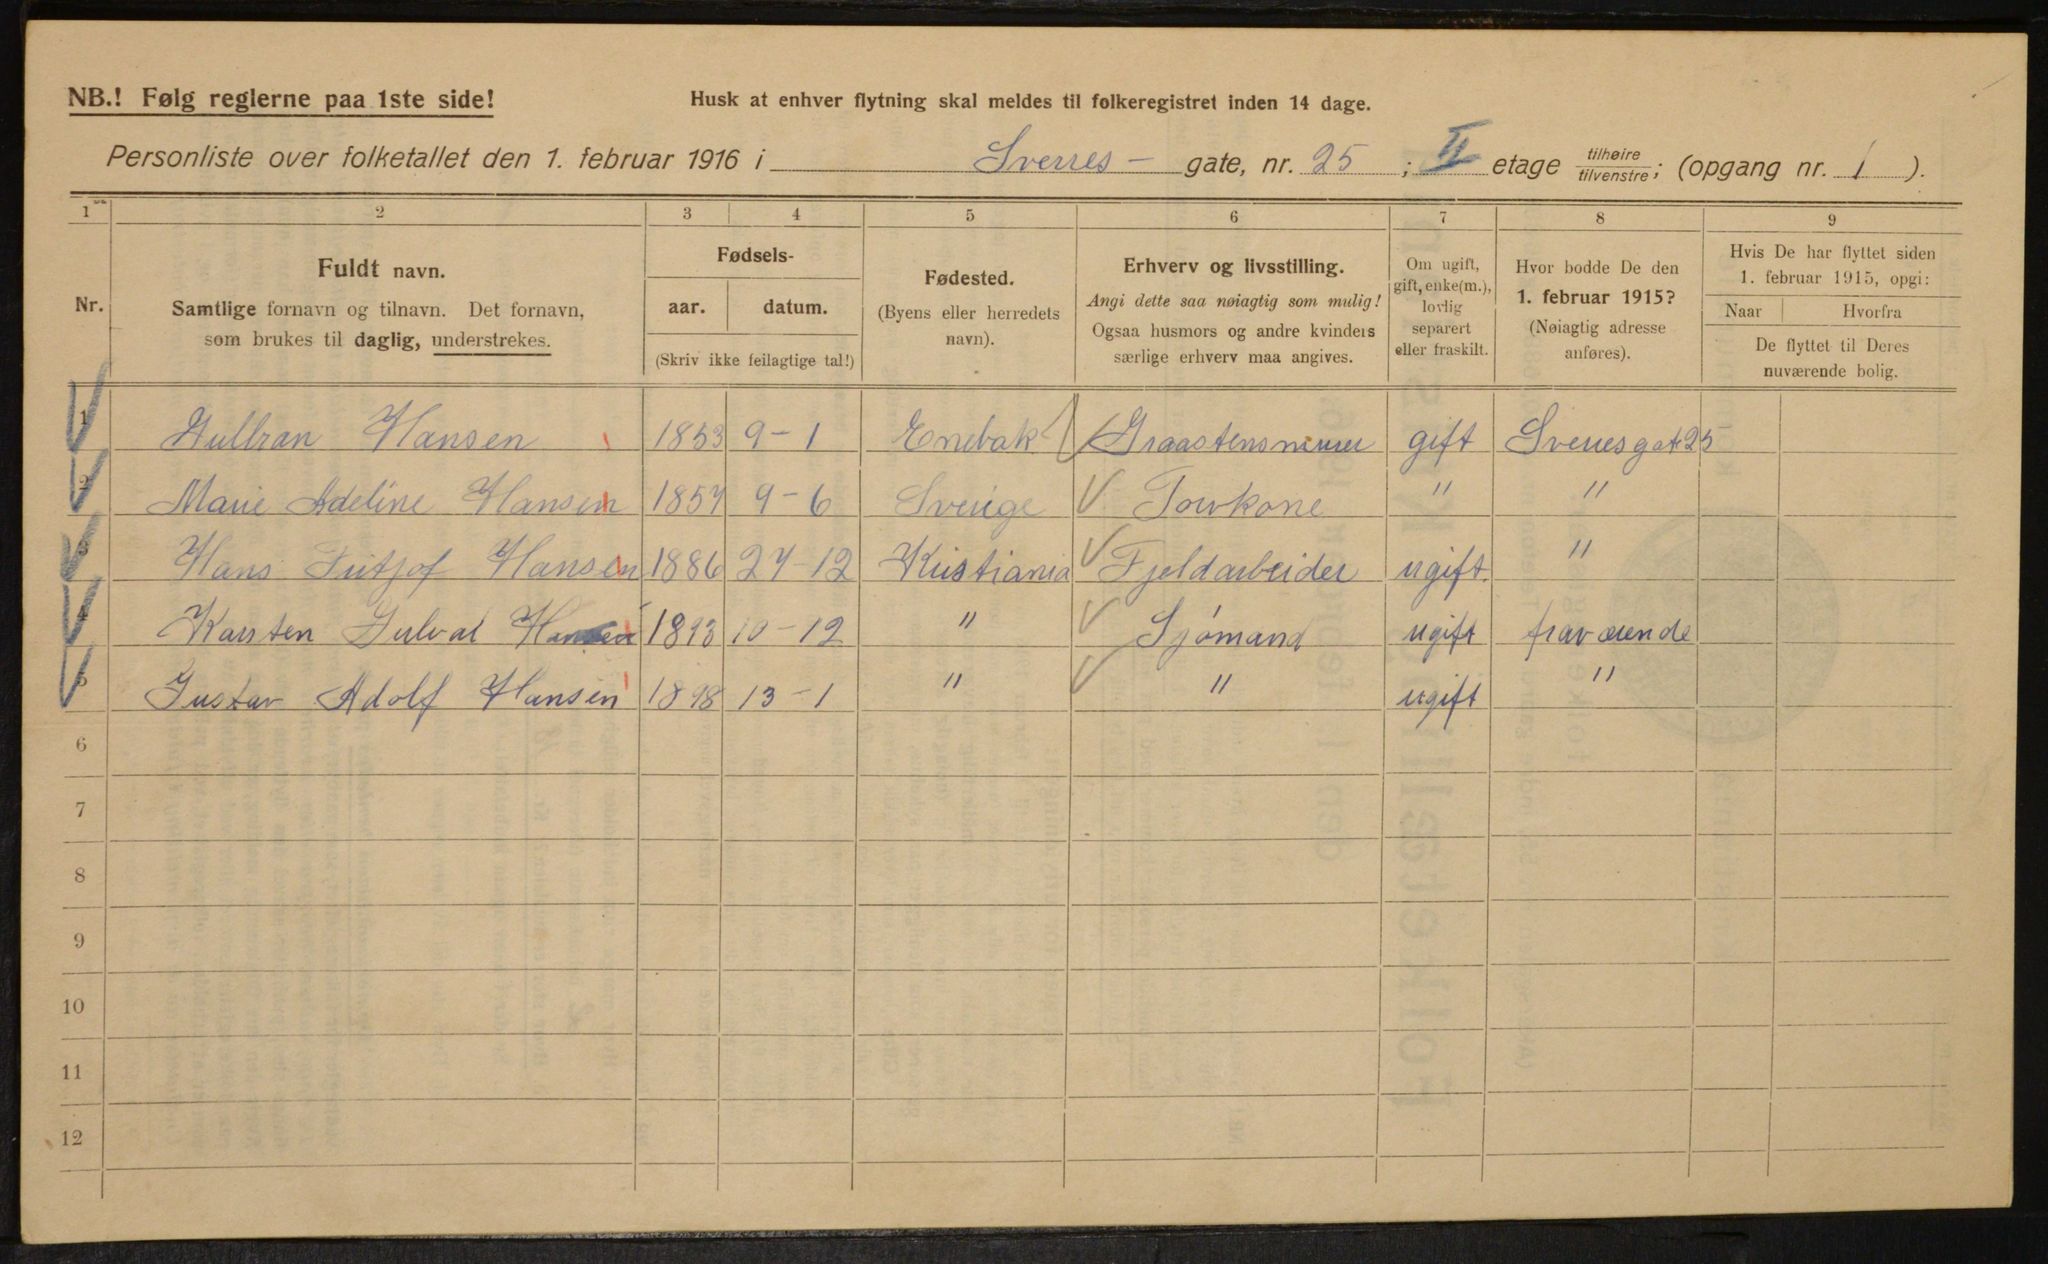 NB.! Følg reglerne paa 1ste side!
Husk at enhver flytning skal meldes til folkeregistret inden 14 dage.
Personliste over folketallet den 1. februar 1916 i Sverres- gate, nr. 25 ; II etage tilhøire tilvenstre; (opgang nr. 1 ).
1 2 3 4 5 6 7 8 9
Nr.
Fuldt navn.
Samtlige fornavn og tilnavn. Det fornavn,
som brukes til daglig, understrekes.
Fødsels-
aar. datum.
(Skriv ikke feilagtige tal!)
Fødested.
(Byens eller herredets
navn).
Erhverv og livsstilling.
Angi dette saa nøiagtig som mulig!
Ogsaa husmors og andre kvinders
særlige erhverv maa angives.
Om ugift,
gift, enke(m.),
lovlig
separert
eller fraskilt.
Hvor bodde De den
1. februar 1915?
(Nøiagtig adresse
anføres).
Hvis De har flyttet siden
1. februar 1915, opgi:
Naar Hvorfra
De flyttet til Deres
nuværende bolig.
1 Hansen 1853 9-1 Enebak Graastensmurer gift Sverresgat 25
2 Marie Adeline Hansen 1857 9-6 Sverige " "
3 Hans Fritjof Hansen 1886 27-12 Kristiania Fjeldarbeider ugift. "
4 Karsten Hansen 1893 10-12 " Sjømand ugift fraværende
5 Gustav Adolf Hansen 1898 13-1 " " ugift "
6
7
8
9
10
11
12